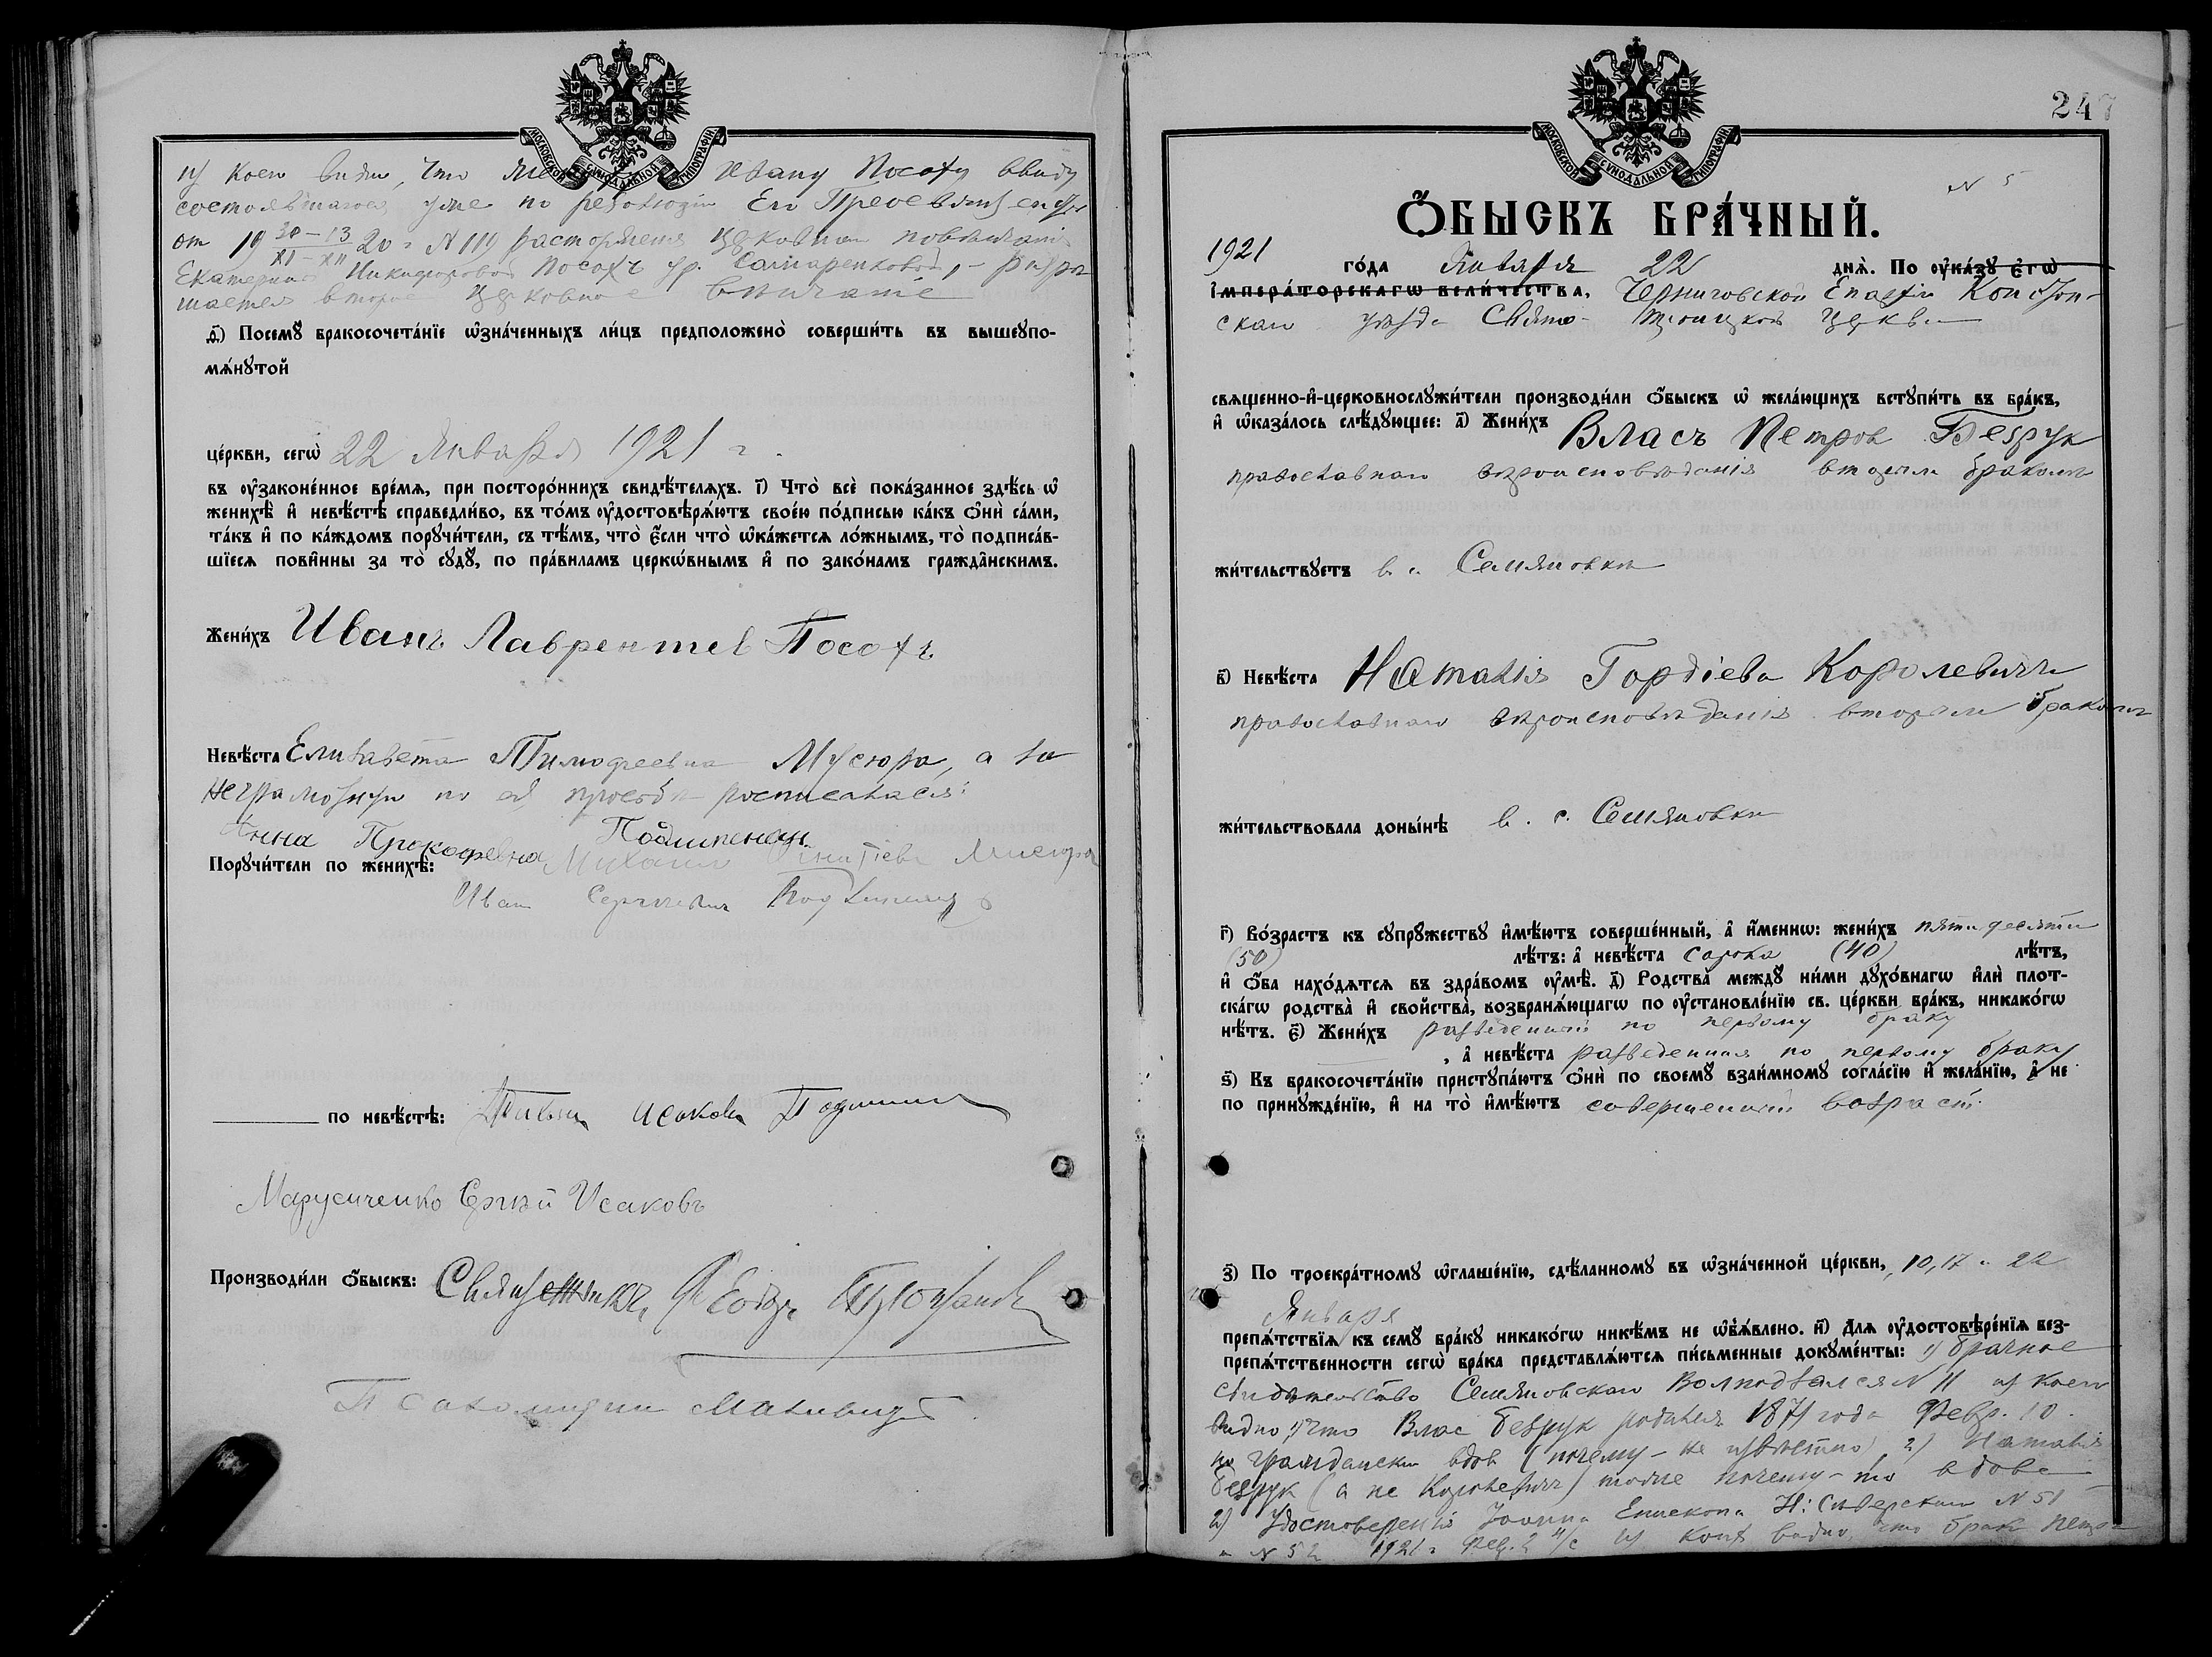 МОСКОВСКОЙ СУНОДАЛЬНОЙ ТИПОГРАФІИ
коего видно, что Ивану Посоху ввиду
состоявшагося уже по резолюціи Его Преосвященства
от 19 30–13/XI–XII 20 г. № 1119 расторженія церковнаго повѣнчанія
Екатериной Никифоровой Посохъ ур. , – разрѣ
шается второе церковное вѣнчаніе
д҃і) Посемꙋ̀ бракосочета́нїе ѡ҆зна́ченныхъ ли́цъ предположено̀ соверши́ть въ вышеꙋпо-
мѧ́нꙋтой
це́ркви, сегѡ̀ 22 Января 1921 г.
въ ᲂу҆законе́нное вре́мѧ, при посторо́ннихъ свидѣ́телѧхъ. і҃) Что̀ всѐ пока́занное здѣ́сь ѡ҆
женихѣ̀ и҆ невѣ́стѣ справедли́во, въ то́мъ ᲂу҆достовѣрѧ́ютъ свое́ю по́дписью ка́къ ѻ҆нѝ са́ми,
та́къ и҆ по ка́ждомъ порꙋчи́тели, съ тѣ́мъ, что̀ є҆́сли что̀ ѡ҆ка́жетсѧ ло́жнымъ, то̀ подписа́в-
шїесѧ пови́нны за то̀ сꙋдꙋ̀, по пра́виламъ церкѡ́внымъ и҆ по зако́намъ гражда̑нскимъ.
Жени́хъ Иванъ Лаврентев Посохъ
Невѣ́ста Елизавета Тимофеевна Мусюра, а за
неграмотную по ея просьбѣ росписалася:
Анна Прокофевна
Порꙋчи́тели по женихѣ̀: Михаил Мисюра
Иван Сергѣевич
по невѣ́стѣ: Исакова
Марусиченко Сергѣй Исаковъ
Производи́ли ѻ҆́быскъ: Священникъ Ѳеодоръ
Псаломщик
247
МОСКОВСКОЙ СУНОДАЛЬНОЙ ТИПОГРАФІИ
N 5
Ѻ҆́БЫСКЪ БРА́ЧНЫЙ.
1921 го́да Января 22 днѧ̀. По ᲂу҆ка́зꙋ є҆гѡ̀
і҆мпера́торскагѡ вели́чества, Черниговской Епархіи Конотоп-
скаго уѣзда Свято-Троицкой церкви
свѧщенно-и҆-церковнослꙋжи́тели производи́ли ѻ҆́быскъ ѡ҆ жела́ющихъ встꙋпи́ть въ бра́къ,
и҆ ѡ҆каза́лось слѣ́дꙋющее: а҃) Жени́хъ Власъ Петров Безрук
православнаго вѣроисповѣданія вторым браком
жи́тельствꙋетъ в с. Семяновкѣ
в҃) Невѣ́ста Наталія Гордіева Королевичъ
православнаго вѣроисповѣданія вторым браком
жи́тельствовала донынѣ в. с. Семяновки
г҃) Во́зрастъ къ сꙋпрꙋжествꙋ и҆мѣ́ютъ соверше́нный, а҆ и҆́меннѡ: жени́хъ пятидесяти
(50) лѣ́тъ: а҆ невѣ́ста сорока (40) лѣ́тъ,
и҆ ѻ҆́ба нахо́дѧтсѧ въ здра́вомъ ᲂу҆мѣ̀. д҃) Родства̀ междꙋ̀ ни́ми дꙋхо́внагѡ и҆лѝ плот-
ска́гѡ родства̀ и҆ свойства̀, возбранѧ́ющагѡ по ᲂу҆становле́нїю св. це́ркви бра́къ, никако́гѡ
нѣ́тъ. є҃) Жени́хъ разведенный по первому браку
, а҆ невѣ́ста разведенная по первому браку
ѕ҃) Къ бракосочета́нїю пристꙋпа́ютъ ѻ҆нѝ по своемꙋ̀ взаи́мномꙋ согла́сїю и҆ жела́нїю, а҆ не
по принꙋжде́нїю, и҆ на то̀ и҆мѣ́ютъ совершенный возраст.
з҃) По троекра́тномꙋ ѡ҆глаше́нїю, сдѣ́ланномꙋ въ ѡ҆зна́ченной це́ркви, 10, 17 и 22
Января
препѧ́тствїѧ къ семꙋ̀ бра́кꙋ никако́гѡ никѣ́мъ не ѡ҆б̾ѧ́влено. и҃) Длѧ ᲂу҆достовѣре́нїѧ без-
препѧ́тственности сегѡ̀ бра́ка представлѧ́ютсѧ пи́сьменные докꙋме́нты: 1) брачное
свидѣтельство Семяновскаго Волподзагса N 11 из коего
видно, 1) что Влас Безрук родился 1871 года Февр. 10.
по граждански вдов (почему – не извѣстно), 2) Наталія
Безрук (а не Королевич) тоже почему-то вдова
2) Удостоверенія Іоанна Епископа Н: Сѣверскаго N 51
и N 52 1921 г. из коих видно, что брак Петра